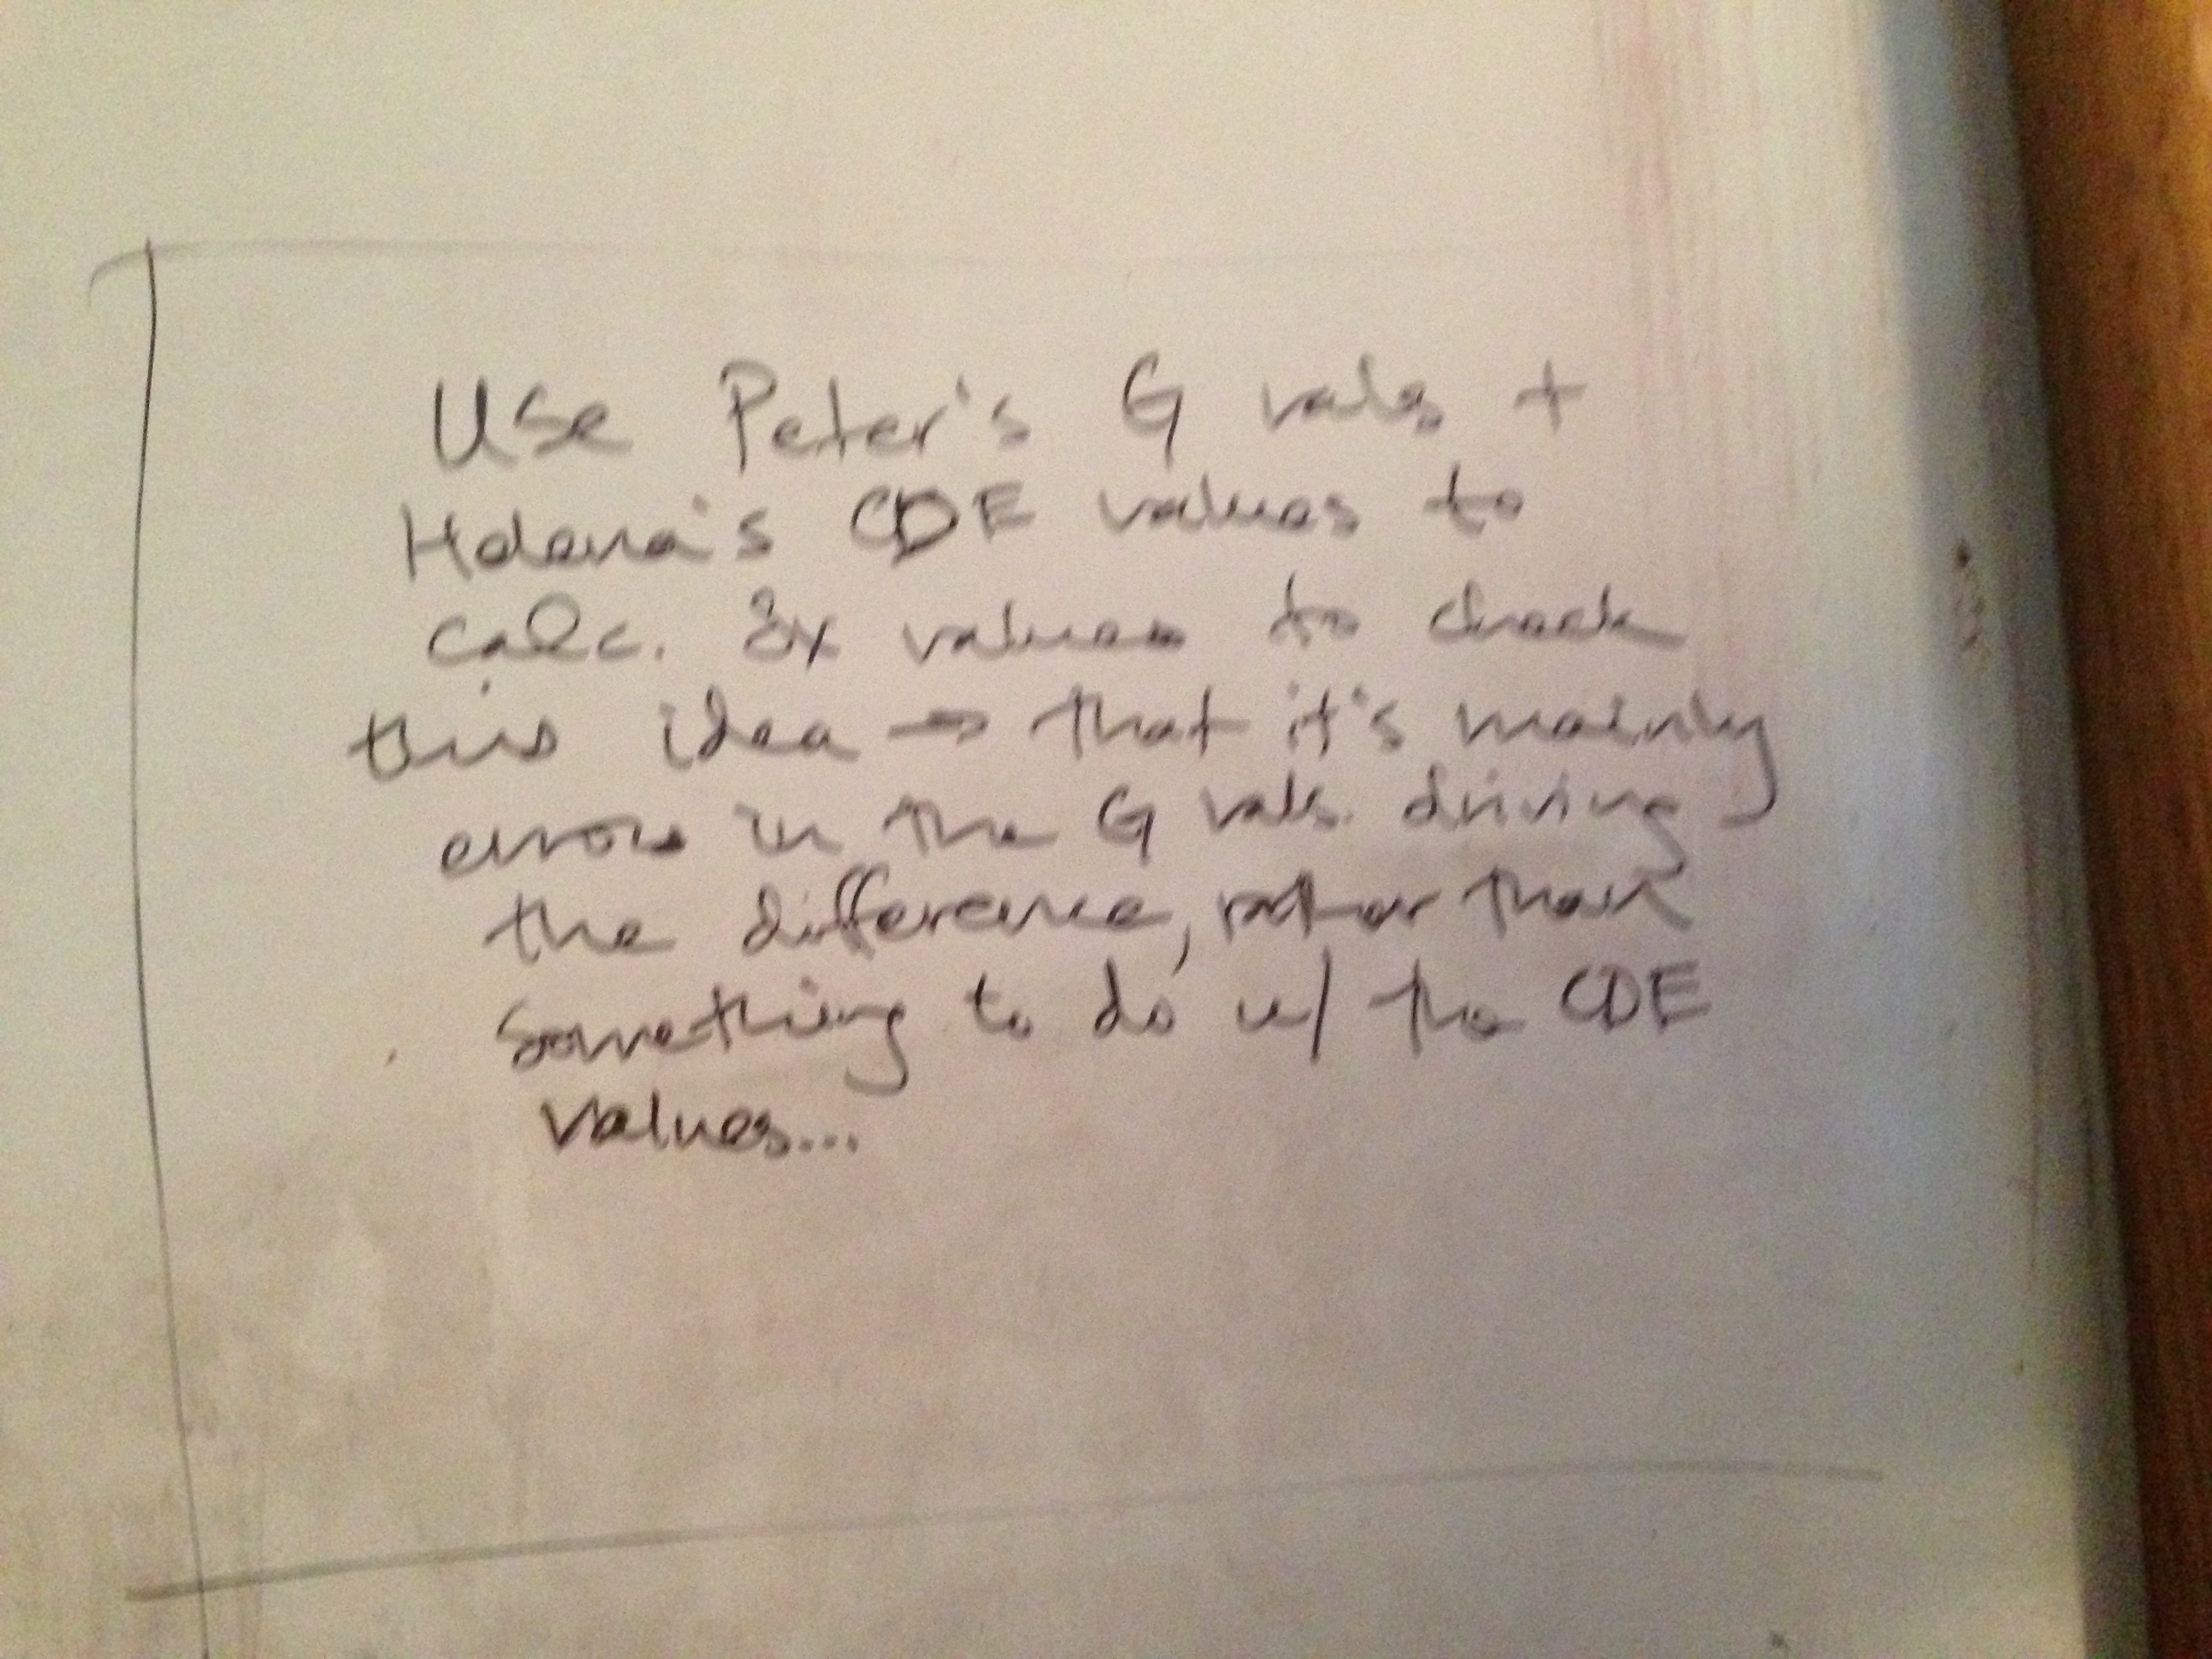 Use Peter's G vals +
Helena's CDE values to
calc. γx values to check
this idea → that it's mainly
errors in the G vals. driving
the difference, rather than
something to do w/ the CDE
values...